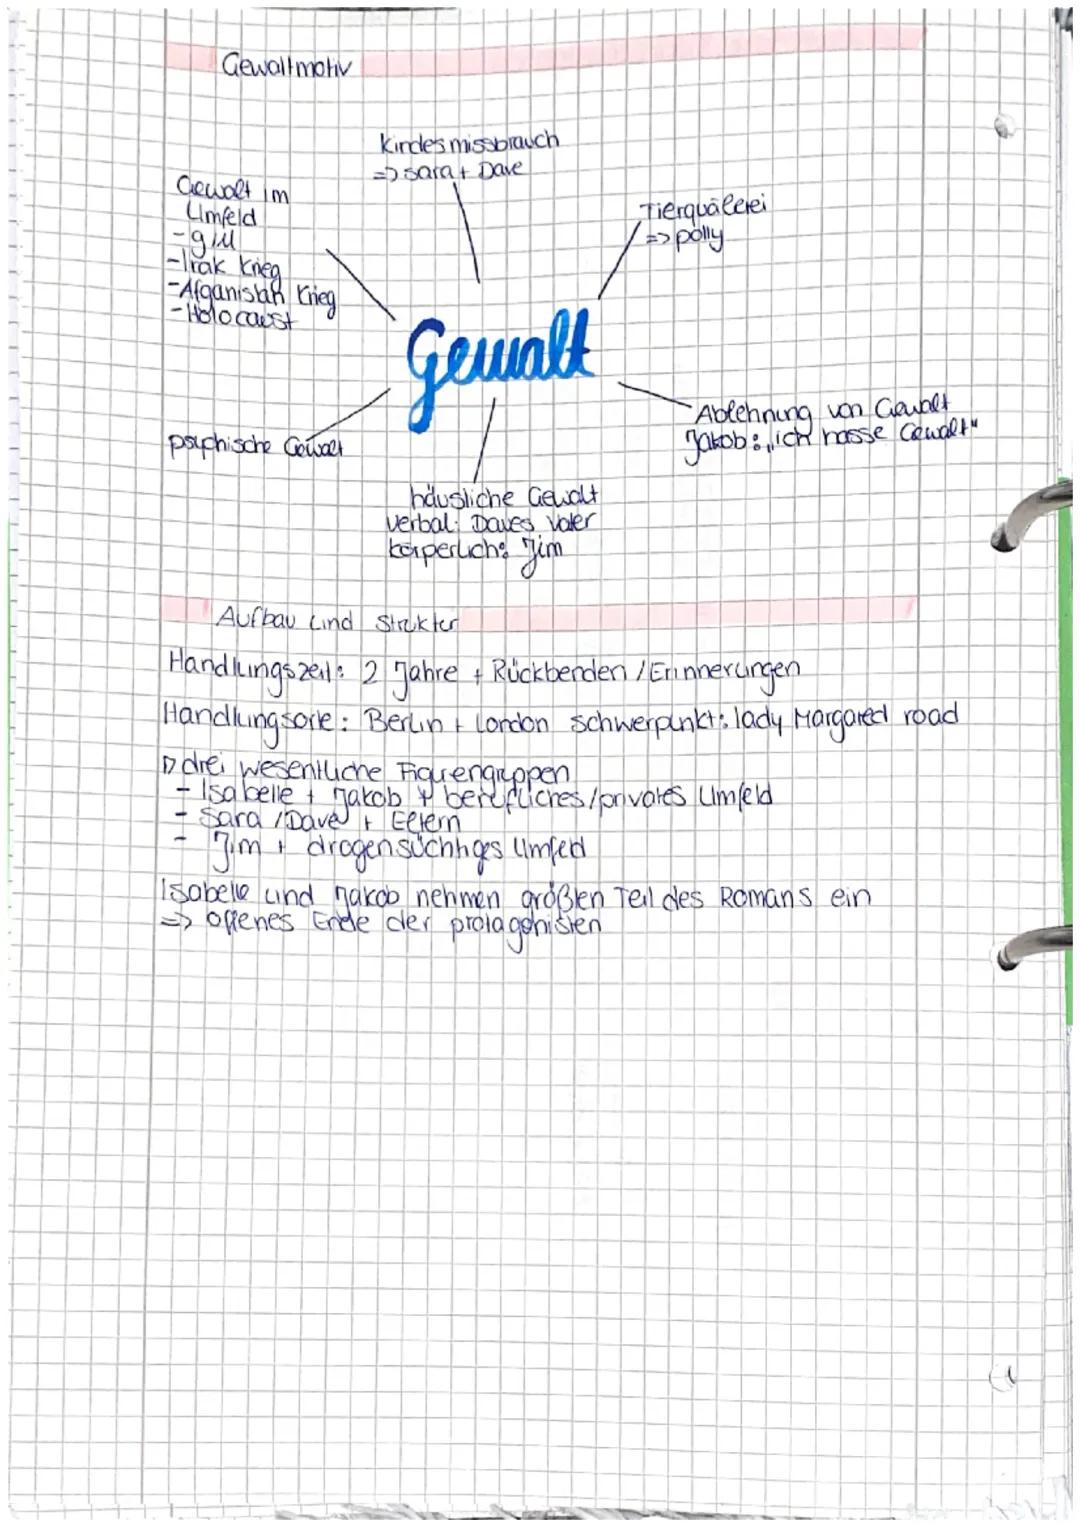 Gewaltmotiv
Kindesmissbrauch
=> Sara + Dave
Gewalt im
Umfeld
- 9/11
- Irak Krieg
- Afganistan Krieg
- Holocaust
Tierquälerei
=> polly
Gewalt
Ablehnung von Gewalt
Jakob: „ich hasse Gewalt"
psychische Gewalt
häusliche Gewalt
verbal: Daves Vater
körperlich: Jim
Aufbau und Struktur
Handlungszeit: 2 Jahre + Rückbenden / Erinnerungen
Handlungsorte: Berlin + London schwerpunkt: lady Margared road
▷ drei wesentliche Figurengruppen
- Isabelle + Jakob + berufliches/privates Umfeld
- Sara / Dave + Eltern
- Jim + drogensüchtiges Umfeld
Isabelle und Jakob nehmen größten Teil des Romans ein
=> offenes Ende der protagonisten